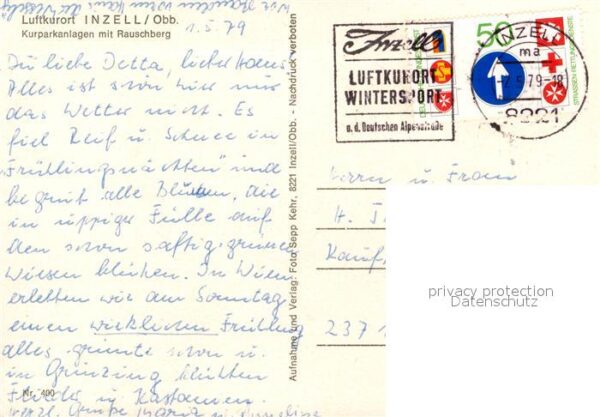 Luftkurort INZELL/Obb.
Kurparkanlagen mit Rauschberg
1.5.79
Du liebe Detta, liebe Hanne,
Alles ist schön hier nur
das Wetter nicht. Es
fiel Reif u. Schnee in
"Frühlingsnächten" und
begrub alle Blüten, die
in üppiger Fülle auf
den schon saftig-grünen
Wiesen blühten. In Wien
erlebten wir am Sonntag
einen wirklichen Frühling
alles grünte schon u.
in Grinzing blühten
Flieder u. Kastanien.
Herzl. Grüße Maria u.
Nr. 490
Aufnahme und Verlag: Foto Sepp Kehr, 8221 Inzell/Obb. - Nachdruck verboten
Inzell
LUFTKURORT
WINTERSPORT
a.d. Deutschen Alpenstraße
50
STRASSEN-RETTUNGSDIENSTE
INZELL
ma
-2.5.79-18
8221
Herrn u. Frau
H.
Kauf
237
privacy protection
Datenschutz